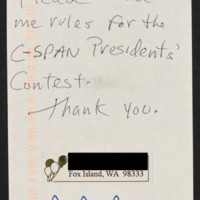 me rules for the
C-SPAN Presidents'
Contest.
Thank you.
Fox Island, WA 98333